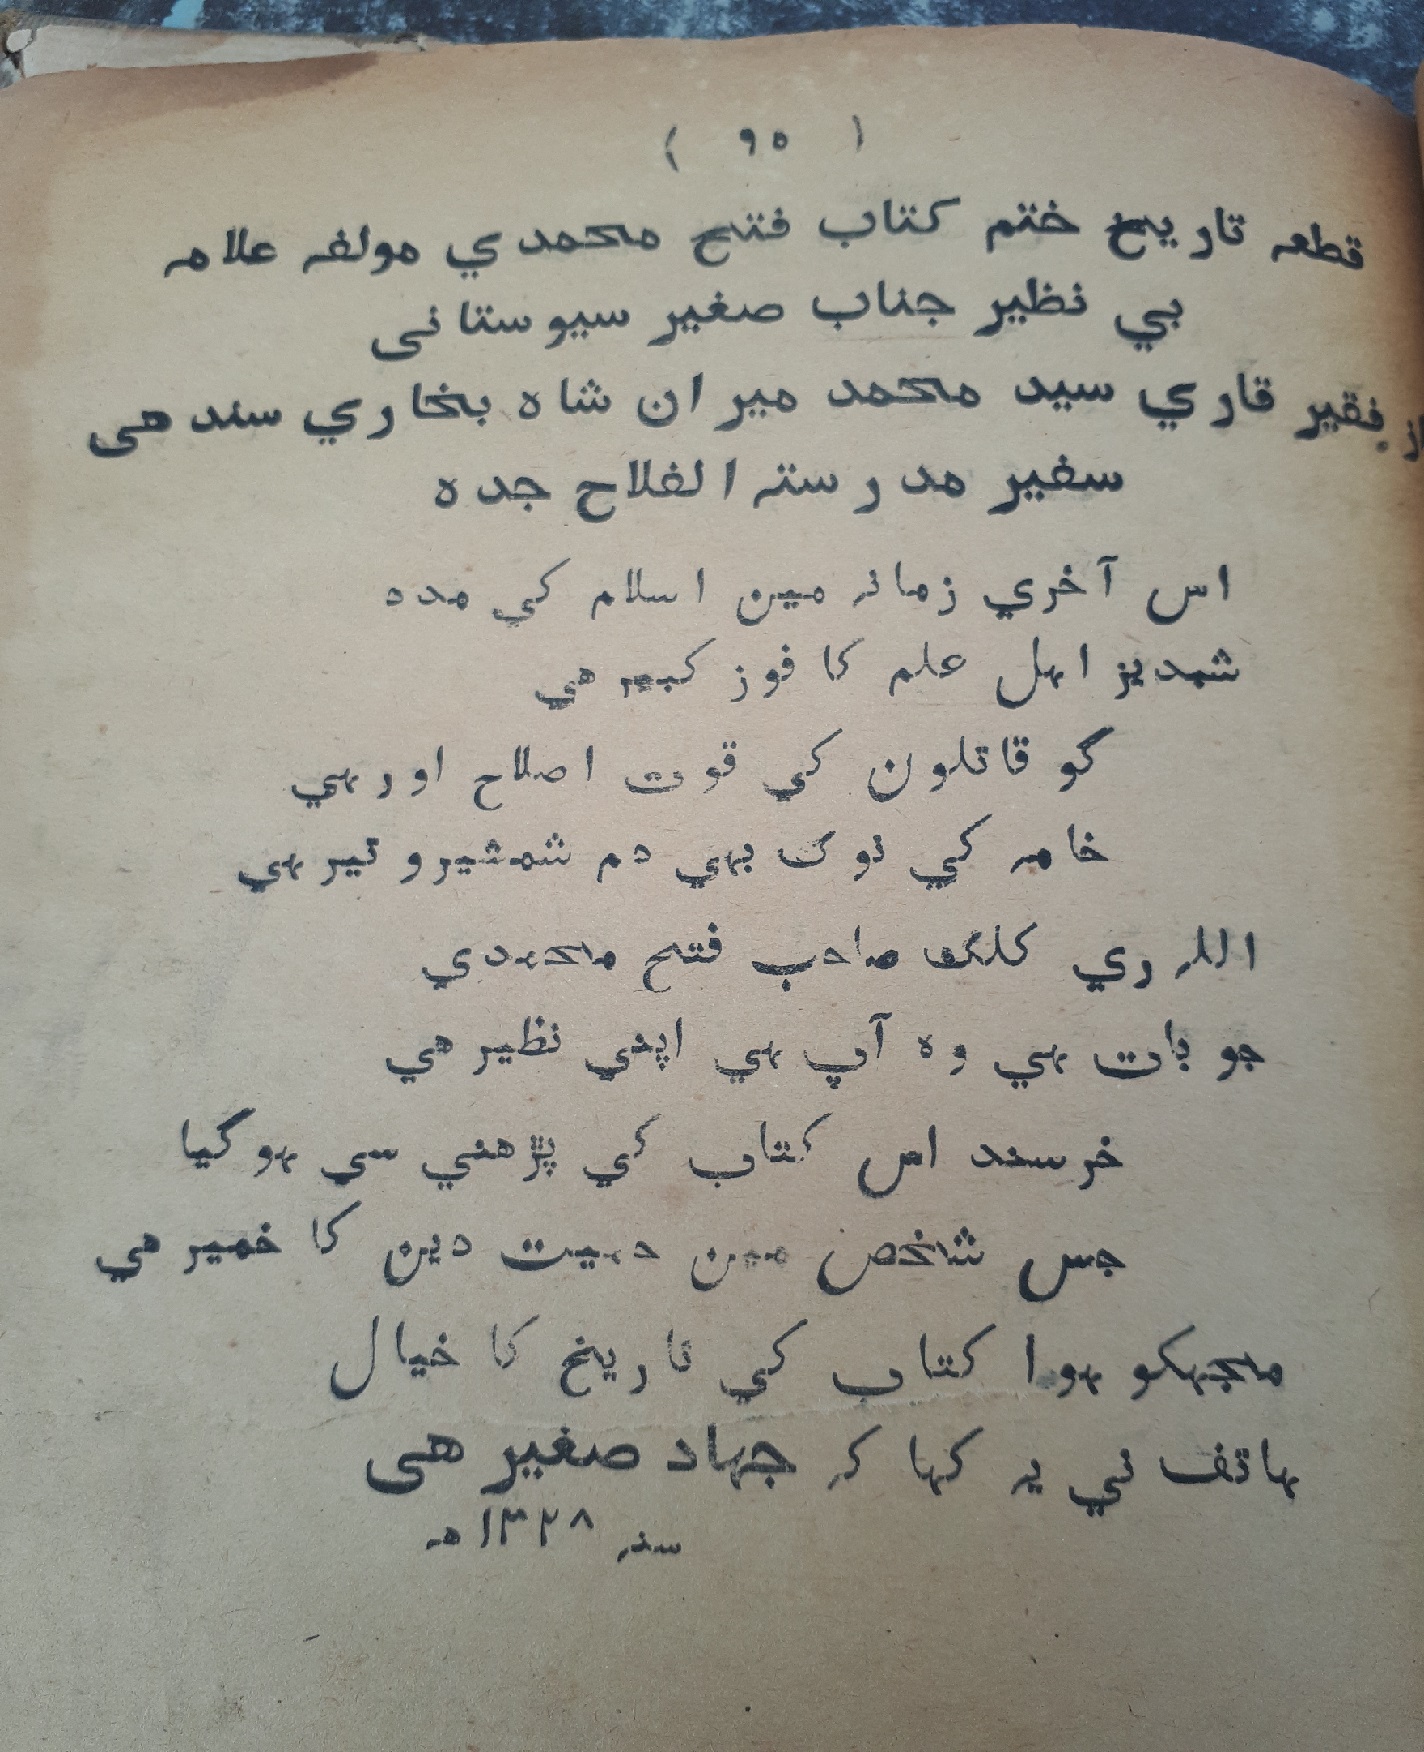 ( ۹۵ )
قطعہ تاریخ ختم کتاب فتح محمدي مولفہ علامہ
بي نظیر جناب صغیر سیوستانی
از فقیر قاري سید محمد میران شاہ بخاري سندھی
سفیر مدرستہ الفلاح جدہ
اس آخري زمانہ مین اسلام کي مدد
شبدیز اہل علم کا فوز کبیر هي
گو قاتلون کي قوت اصلاح اور ہي
خامہ کي نوک بہي دم شمشیر و تیر ہي
اللہ ري کلک صاحب فتح محمدي
جو بات ہي وہ آپ ہي اپني نظیر هي
خرسند اس کتاب کي پڑهني سي ہو گیا
جس شخص مین حمیت دین کا خمیر هي
مجہکو ہوا کتاب کي تاریخ کا خیال
ہاتف ني یہ کہا کہ جہاد صغیر ھی
سنہ ۱۳۲۸ ھ